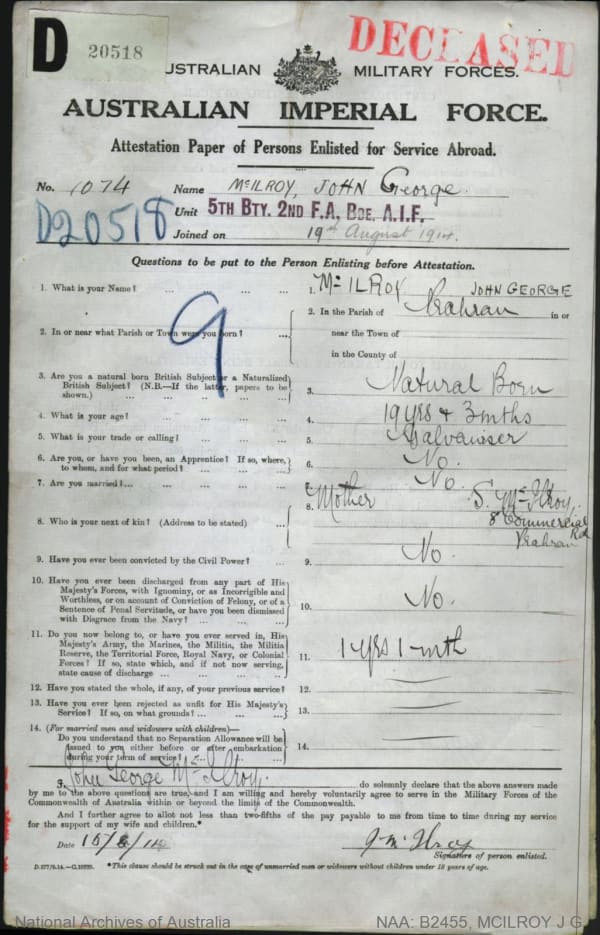 D
20518
DECEASED
AUSTRALIAN MILITARY FORCES.
AUSTRALIAN IMPERIAL FORCE.
Attestation Paper of Persons Enlisted for Service Abroad.
No. 1074 Name McILROY, JOHN George.
D20518 Unit 5TH BTY. 2ND F.A. BDE, A.I.F.
Joined on 19th August 1914.
Questions to be put to the Person Enlisting before Attestation.
1. What is your Name? ... ... ... 1. Mc ILROY JOHN GEORGE
2. In or near what Parish or Town were you born? ... 2. In the Parish of Prahran in or
near the Town of
in the County of
9
3. Are you a natural born British Subject or a Naturalized
British Subject? (N.B.—If the latter, papers to be
shown.) ... 3. Natural Born
4. What is your age? ... 4. 19 yrs & 3 mths
5. What is your trade or calling? ... 5. Galvaniser
6. Are you, or have you been, an Apprentice? If so, where,
to whom, and for what period? ... 6. No.
7. Are you married?... ... 7. No.
8. Who is your next of kin? (Address to be stated) ... 8. Mother S. McIlroy,
8 Commercial
Rd
Prahran
9. Have you ever been convicted by the Civil Power? ... 9. No.
10. Have you ever been discharged from any part of His
Majesty's Forces, with Ignominy, or as Incorrigible and
Worthless, or on account of Conviction of Felony, or of a
Sentence of Penal Servitude, or have you been dismissed
with Disgrace from the Navy? ... 10. No.
11. Do you now belong to, or have you ever served in, His
Majesty's Army, the Marines, the Militia, the Militia
Reserve, the Territorial Force, Royal Navy, or Colonial
Forces? If so, state which, and if not now serving,
state cause of discharge ... 11. 1 yrs 1 mth
12. Have you stated the whole, if any, of your previous service? 12.
13. Have you ever been rejected as unfit for His Majesty's
Service? If so, on what grounds? ... 13.
14. (For married men and widowers with children)—
Do you understand that no Separation Allowance will be
issued to you either before or after embarkation
during your term of service? ... 14.
I, John George McIlroy, do solemnly declare that the above answers made
by me to the above questions are true, and I am willing and hereby voluntarily agree to serve in the Military Forces of the
Commonwealth of Australia within or beyond the limits of the Commonwealth.
And I further agree to allot not less than two-fifths of the pay payable to me from time to time during my service
for the support of my wife and children.*
Date 15/8/14 J McIlroy
Signature of person enlisted.
*This clause should be struck out in the case of unmarried men or widowers without children under 18 years of age.
National Archives of Australia NAA: B2455, MCILROY J G